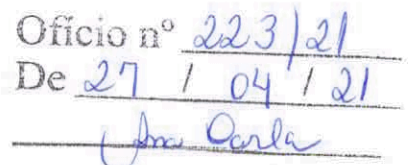 Ofício nº 223/21
De 27 / 04 / 21
Ana Carla